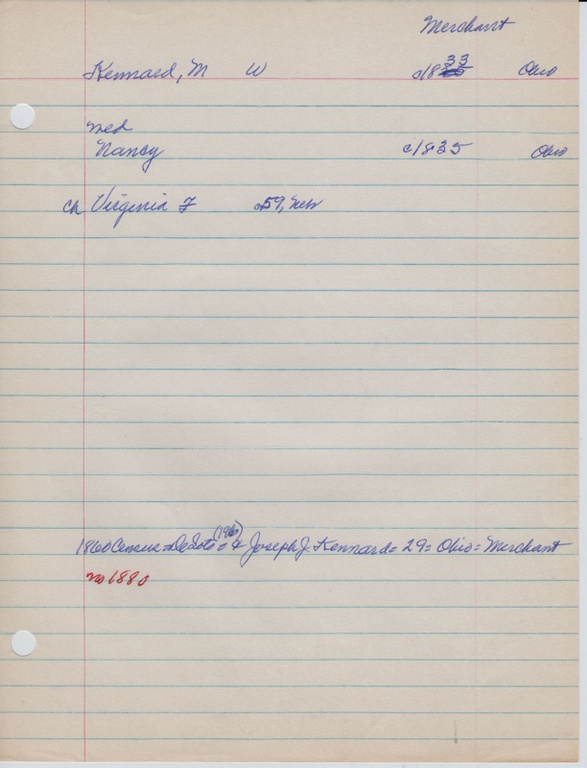 Merchant
Kennard, M W c1833 Ohio
med
Nancy c1835 Ohio
ch Virginia F c59, Neb
1860 Census = DeSoto = & Joseph J. Kennard = 29 = Ohio = Merchant
no 1880